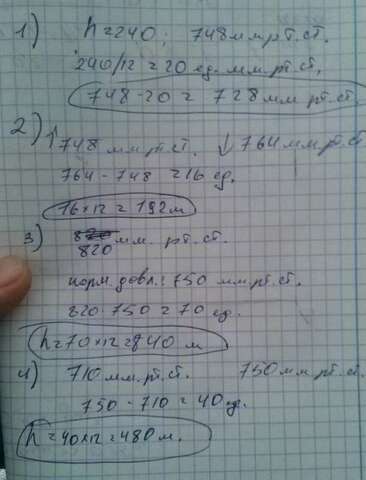 1) h = 240; 748 мм рт. ст.
240/12 = 20 ед. мм. рт. ст.
748 - 20 = 728 мм рт. ст.
2) ↑748 мм рт. ст. ↓ 764 мм рт. ст
764 - 748 = 16 ед.
16 × 12 = 192 м
3) 820 мм. рт. ст.
норм. давл.: 750 мм рт. ст.
820 - 750 = 70 ед.
h = 70 × 12 = 840 м
4) 710 мм. рт. ст. 750 мм рт. ст.
750 - 710 = 40 ед.
h = 40 × 12 = 480 м.